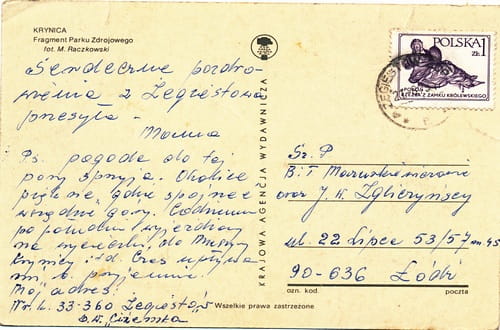 KRYNICA
Fragment Parku Zdrojowego
fot. M. Raczkowski
Serdeczne pozdro-
wienia z Żegiestowa
przesyła -
Mama
Ps. pogoda do tej
pory sprzyja. Okolice
piękne, gdzie spojrzeć
wszędzie góry. Codziennie
po południu wyjeżdżamy
na wycieczki, do Muszyny
Krynicy i td. Czas upływa
mi b. przyjemnie.
Mój adres:
33-360 Żegiestów
D.W. "Cizemka"
KRAJOWA AGENCJA WYDAWNICZA
Wszelkie prawa zastrzeżone
POLSKA 1
ZŁ
Z ZAMKU KRÓLEWSKIEGO
ŻEGIESTÓW
Sz. P
B. i T
oraz J. W. Zgliczyńscy
ul. 22 Lipca 53/57 m 45
90-636 Łódź
ozn. kod.
poczta